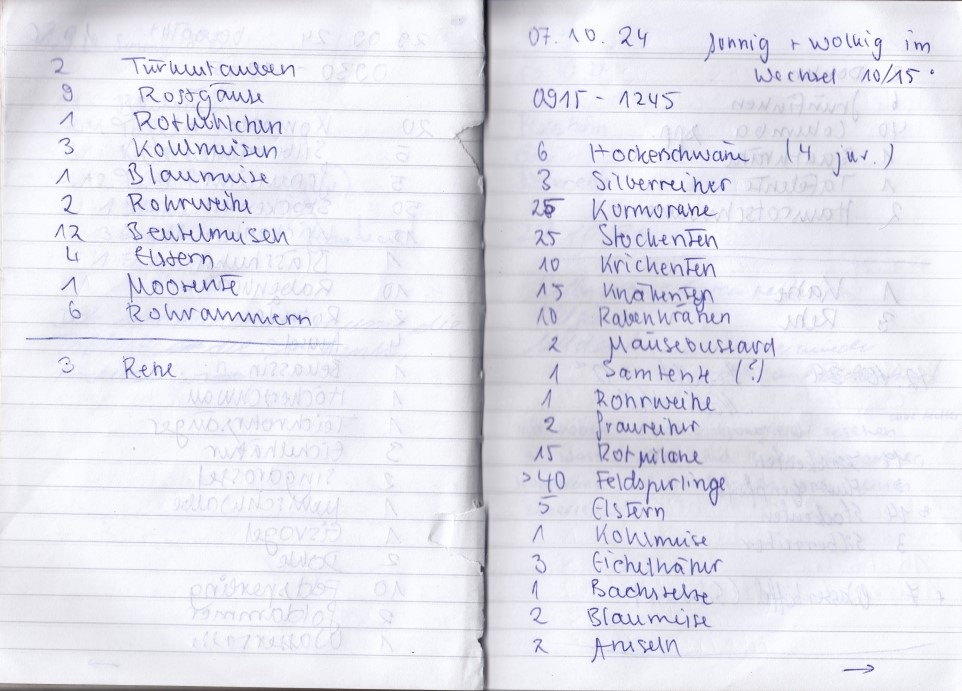 2 Türkentauben
9 Rostgänse
1 Rotkehlchen
3 Kohlmeisen
1 Blaumeise
2 Rohrweihe
12 Beutelmeisen
4 Elstern
1 Moorente
6 Rohrammern
3 Rehe
07.10.24 sonnig + wolkig im
Wechsel 10/15°
0915 - 1245
6 Höckerschwäne (4 juv.)
3 Silberreiher
25 Kormorane
25 Stockenten
10 Krickenten
15 Knäkenten
10 Rabenkrähen
2 Mäusebussard
1 Samtente (?)
1 Rohrweihe
2 Graureiher
15 Rotmilane
>40 Feldsperlinge
5 Elstern
1 Kohlmeise
3 Eichelhäher
1 Bachstelze
2 Blaumeise
2 Amseln
→